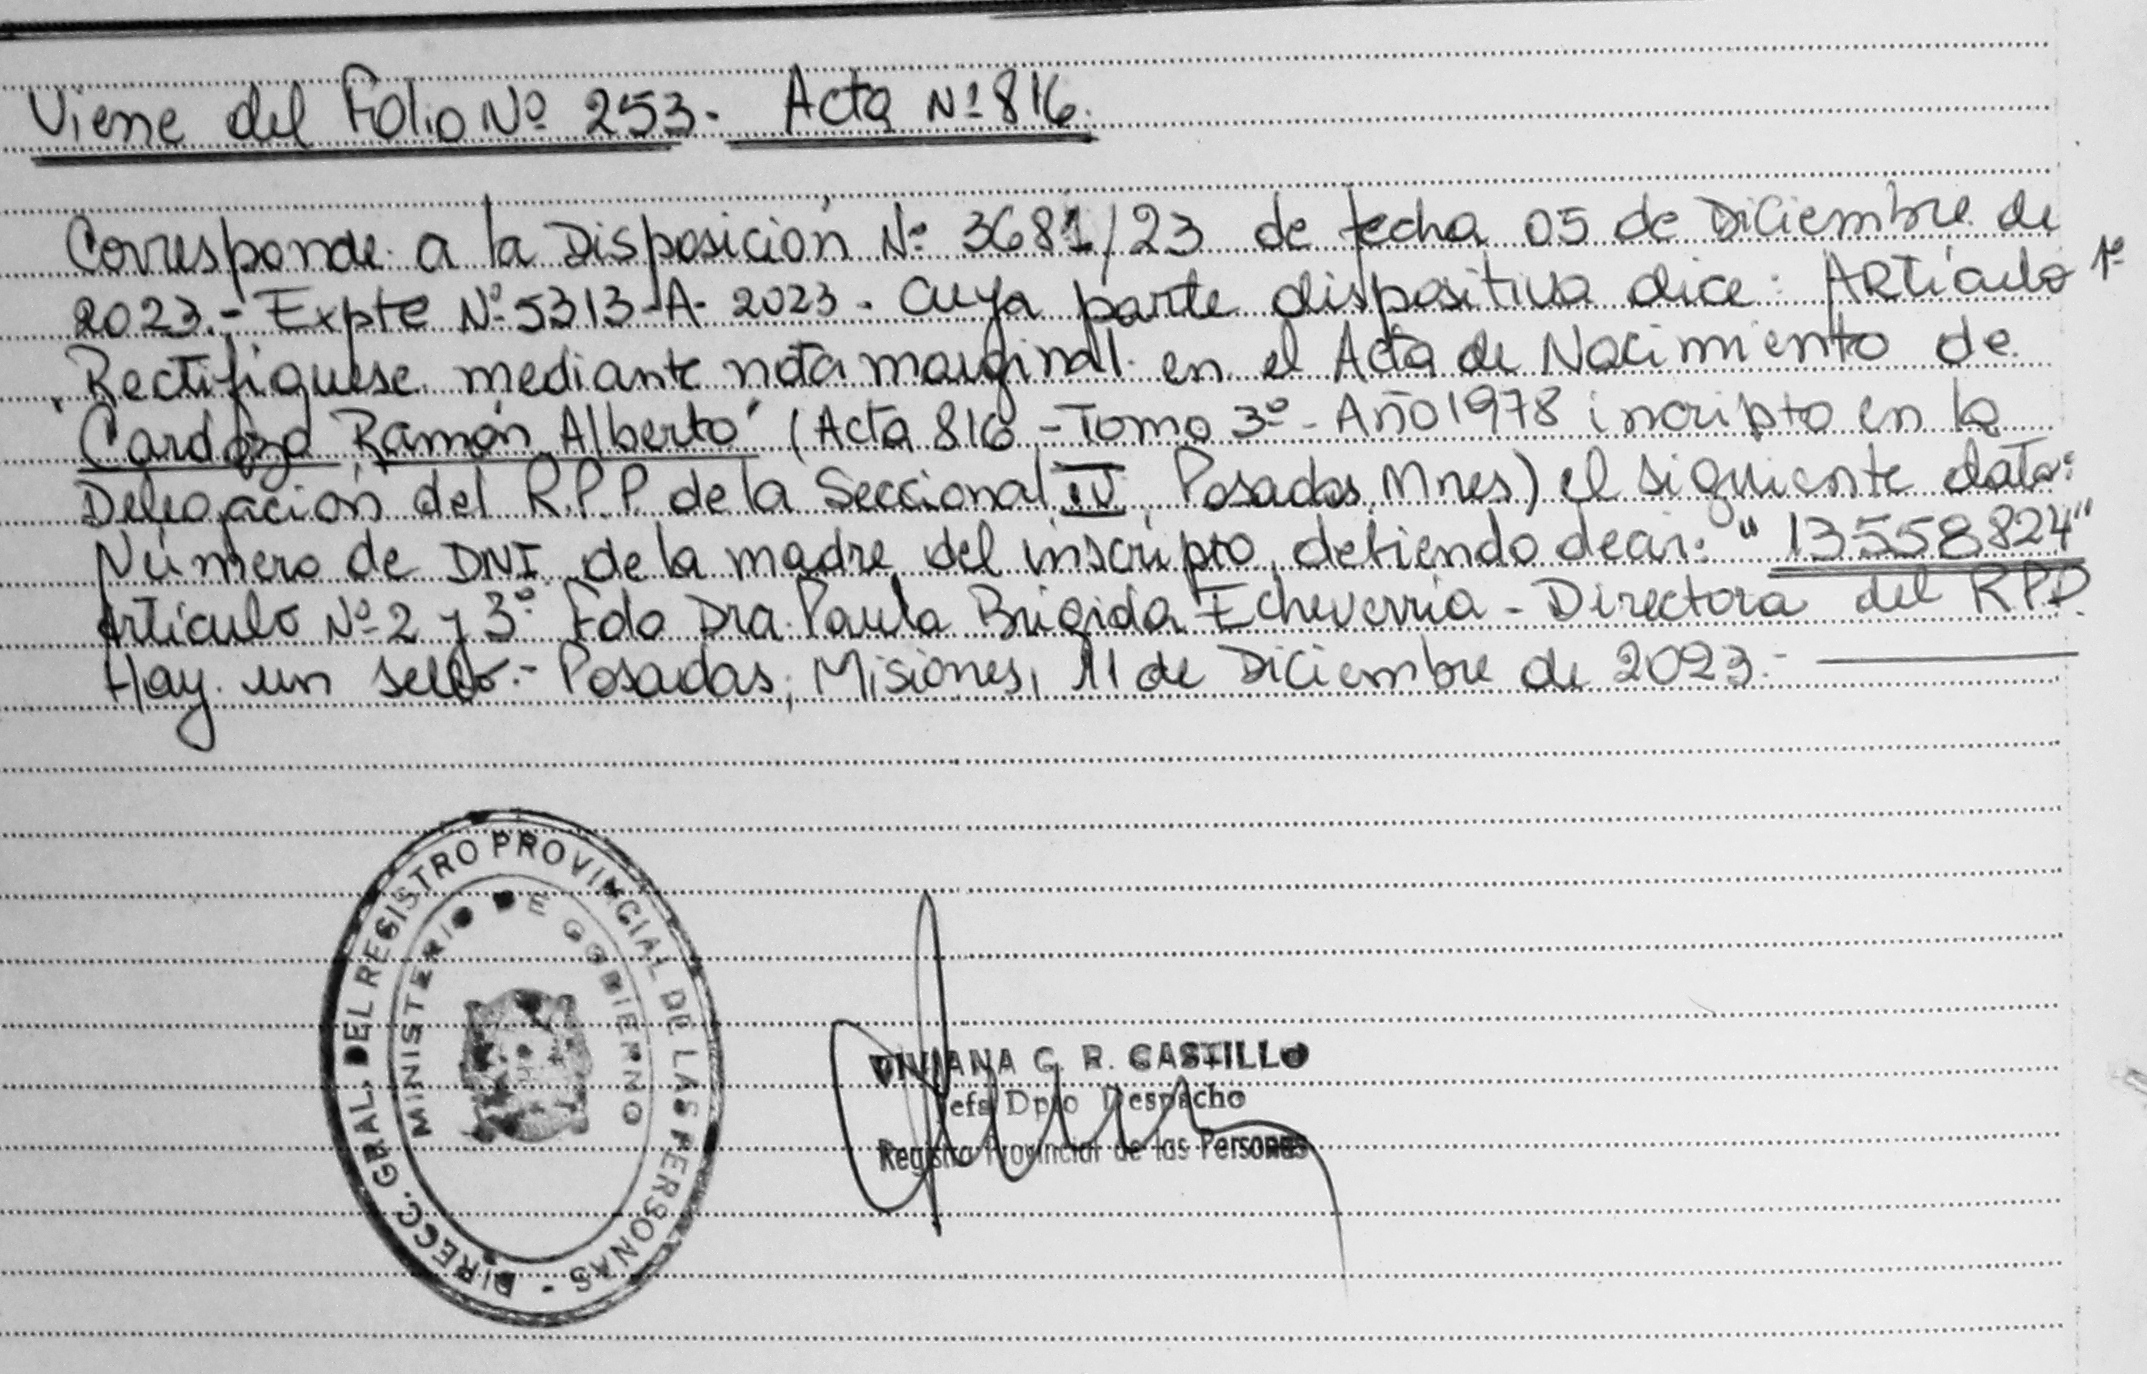 Viene del Folio Nº 253. Acta Nº 816.
Corresponde a la Disposición Nº 3681/23 de fecha 05 de Diciembre de
2023.- Expte Nº 5313-A-2023. Cuya parte dispositiva dice: Artículo 1º
Rectifiquese mediante nota marginal en el Acta de Nacimiento de
"Cardozo Ramón Alberto" (Acta 816 - Tomo 3º - Año 1978 incripto en la
Delegación del R.P.P. de la Seccional IV, Posadas, Mnes) el siguiente dato:
Número de DNI de la madre del inscripto, debiendo decir: "13558824"
Artículo Nº 2 y 3º Fdo Dra. Paula Brigida Echeverria - Directora del RPP.
Hay un sello.- Posadas, Misiones, 11 de Diciembre de 2023.-
DIRECC. GRAL. DEL REGISTRO PROVINCIAL DE LAS PERSONAS -
MINISTERIO DE GOBIERNO
VIVIANA G. R. CASTILLO
Jefa Dpto Despacho
Registro Provincial de las Personas